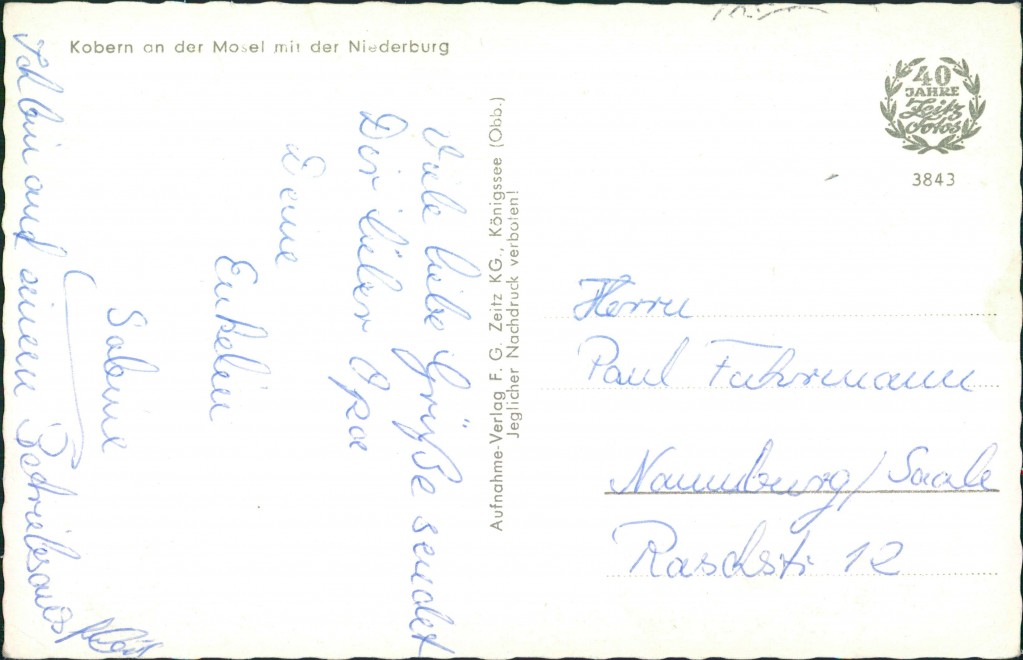 Kobern an der Mosel mit der Niederburg
40
JAHRE
Zeitz
Fotos
3843
Viele liebe Grüße sendet
Dir lieber Opa
Deine
Enkelin
Sabine
Ich bin auf einem Betriebsausfl
Aufnahme-Verlag F. G. Zeitz KG., Königssee (Obb.)
Jeglicher Nachdruck verboten!
Herrn
Paul Fuhrmann
Naumburg/Saale
Raschstr 12